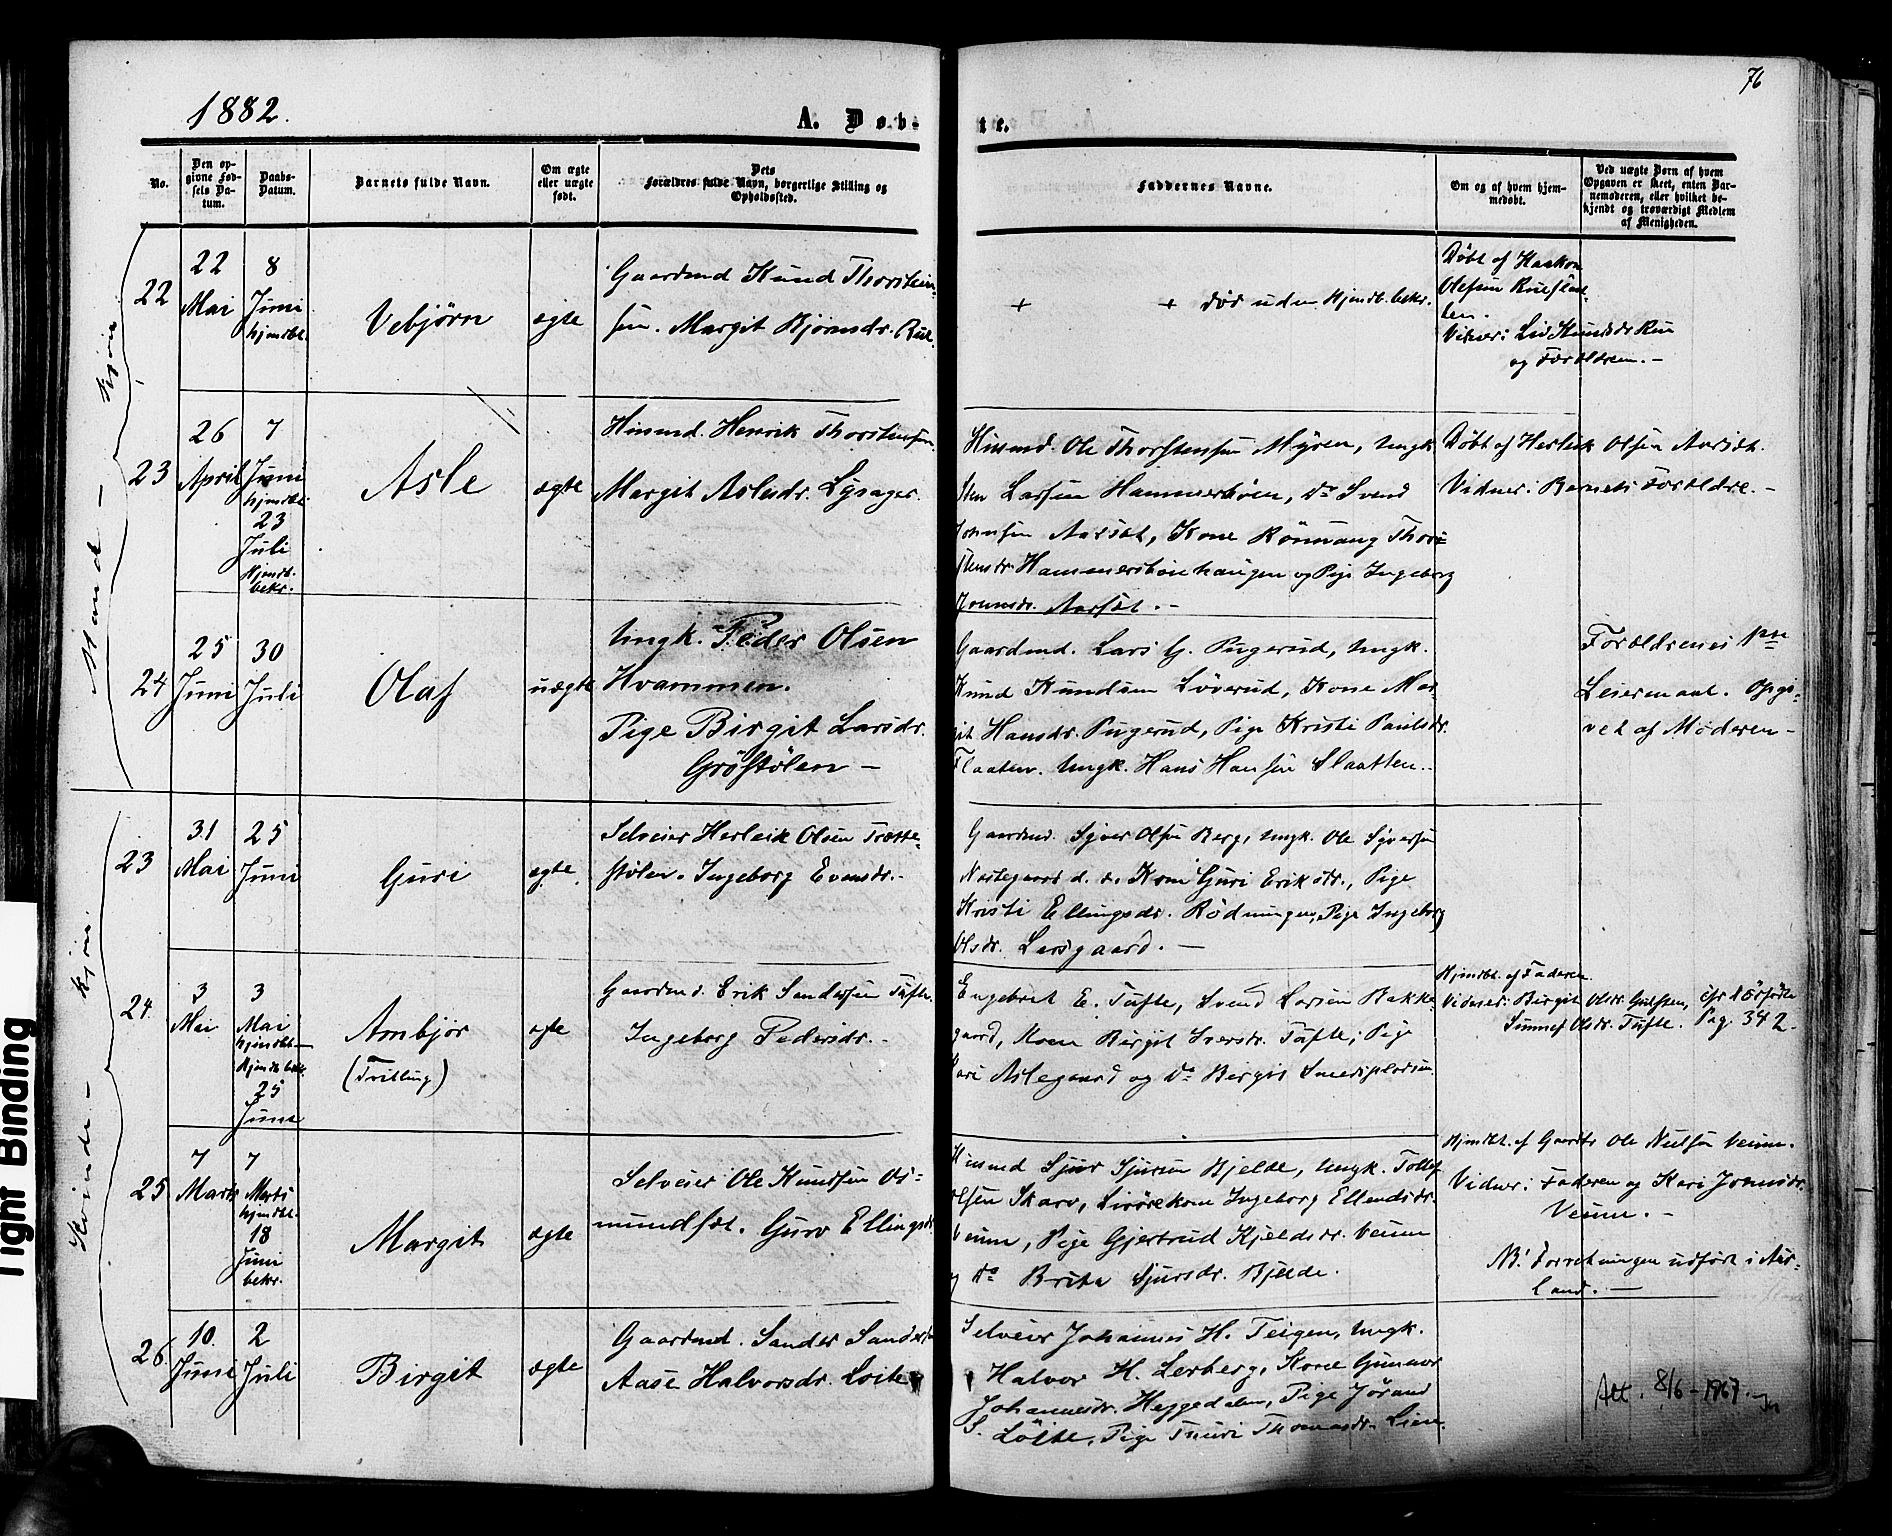 76
1882.
A. Døb-
te.
No.
Den op-
givne Fød-
sels Da-
tum.
Daabs-
Datum.
Barnets fulde Navn.
Om ægte
eller uægte
født.
Dets
Forældres fulde Navn, borgerlige Stilling og
Opholdssted.
Faddernes Navne.
Om og af hvem hjem-
medøbt.
Ved uægte Børn af hvem
Opgaven er skeet, enten Bar-
nemoderen, eller hvilket be-
kjendt og troværdigt Medlem
af Menigheden.
Mand - kjøn
22
22
Mai
8
Juni
hjemdbt.
Vebjørn
ægte
Gaardmd Knud Thorstein-
sen. Margit Bjørnsdr. Rue
+ + død uden hjemdb. bekr.
Døbt af Haakon
Olesen
ten.
Vidner: Liv Knudsdr Rue
og Forældrene. -
23
26
April
7
Juni
hjemdbt
23
Juli
hjemdb.
bekr.
Asle
ægte
Husmd. Henrik Thorstensen
Margit Aslesdr. Lysager.
Husmd. Ole Thorstensen Myren, Ungk
Sten Larsen Hammersbøen, do Svend
Johnsen Aarset, Kone Rønnaug Thor-
stensdr. Hammersbøenhaugen og Pige Ingeborg
Jonsdr. Aarset. -
Døbt af Herleik Olsen Aarset.
Vidner: Barnets Forældre. -
24
25
Juni
30
Juli
Olaf
uægte
Ungk. Peder Olsen
Hvammen.
Pige Birgit Larsdr.
Grøstølen -
Gaardmd. Lars G. Pugerud, Ungk.
Knud Knudsen Løverud, Kone Mar-
git Hansdr. Pugerud, Pige Kristi Paulsdr.
Flaaten. Ungk. Hans Hansen Slaatten.
Forældrenes 1ste
Leiermaal. Opgi-
vet af Moderen -
Kvinde - kjøn.
23
31
Mai
25
Juni
Guri
ægte.
Selveier Herleik Olsen Trætte-
stølen. Ingeborg Evensdr. -
Gaardmd. Syver Olsen Berg, Ungk. Ole Syversen
Nordegaard d. s. Kone Guri Eriksdr., Pige
Kristi Ellingsdr. Rødningen, Pige Ingeborg
Olsdr. Larsgaard. -
24
3
Mai
3
Mai
hjemdbt -
hjemdb bekr.
25
Juni
Ambjør
(Tvilling)
ægte
Gaardmd. Erik Sandersen Tufte.
Ingeborg Pedersdr. -
Engebret E. Tufte, Svend Larsen Bakke-
gaard, Kone Birgit Iversdr. Tufte, Pige
Kari Aslegaard og do Birgit
Hjemdbt. af Faderen.
Vidner: Birgit Olsdr. Gulsten,
Sunnef Olsdr. Tufte.
cfr. Dødfødte
Pag. 342.
25
7
Marts
7
Marts
hjemdbt.
18
Juni
bekr.
Margit
ægte
Selveier Ole Knudsen Os-
mundset. Guro Ellingsdr
Husmd Sjur Sjursen Bjelde, Ungk. Tollef
Olsen Skarv, Livørekone Ingeborg Ellendsdr.
Veum, Pige Gjertrud Kjeldsdr. Veum
og do Brita Sjursdr. Bjelde.
Hjemdbt. af Gaardbr Ole Nielsen Veum.
Vidner: Faderen og Kari Jonsdr.
Veum. -
NB! Forretningen udført i Aur-
land. -
26
10.
Juni
2
Juli
Birgit
ægte
Gaardmd. Sander Sandersen
Aase Halvorsdr. Loite
Selveier Johannes H. Teigen, Ungk.
Halvor H. Lerberg, Kone Gunvor
Johannesdr. Heggedalen, Pige Jørand
S. Loite, Pige Thuri Thomasdr. Lien
Att. 8/6 - 1967
Tight Binding